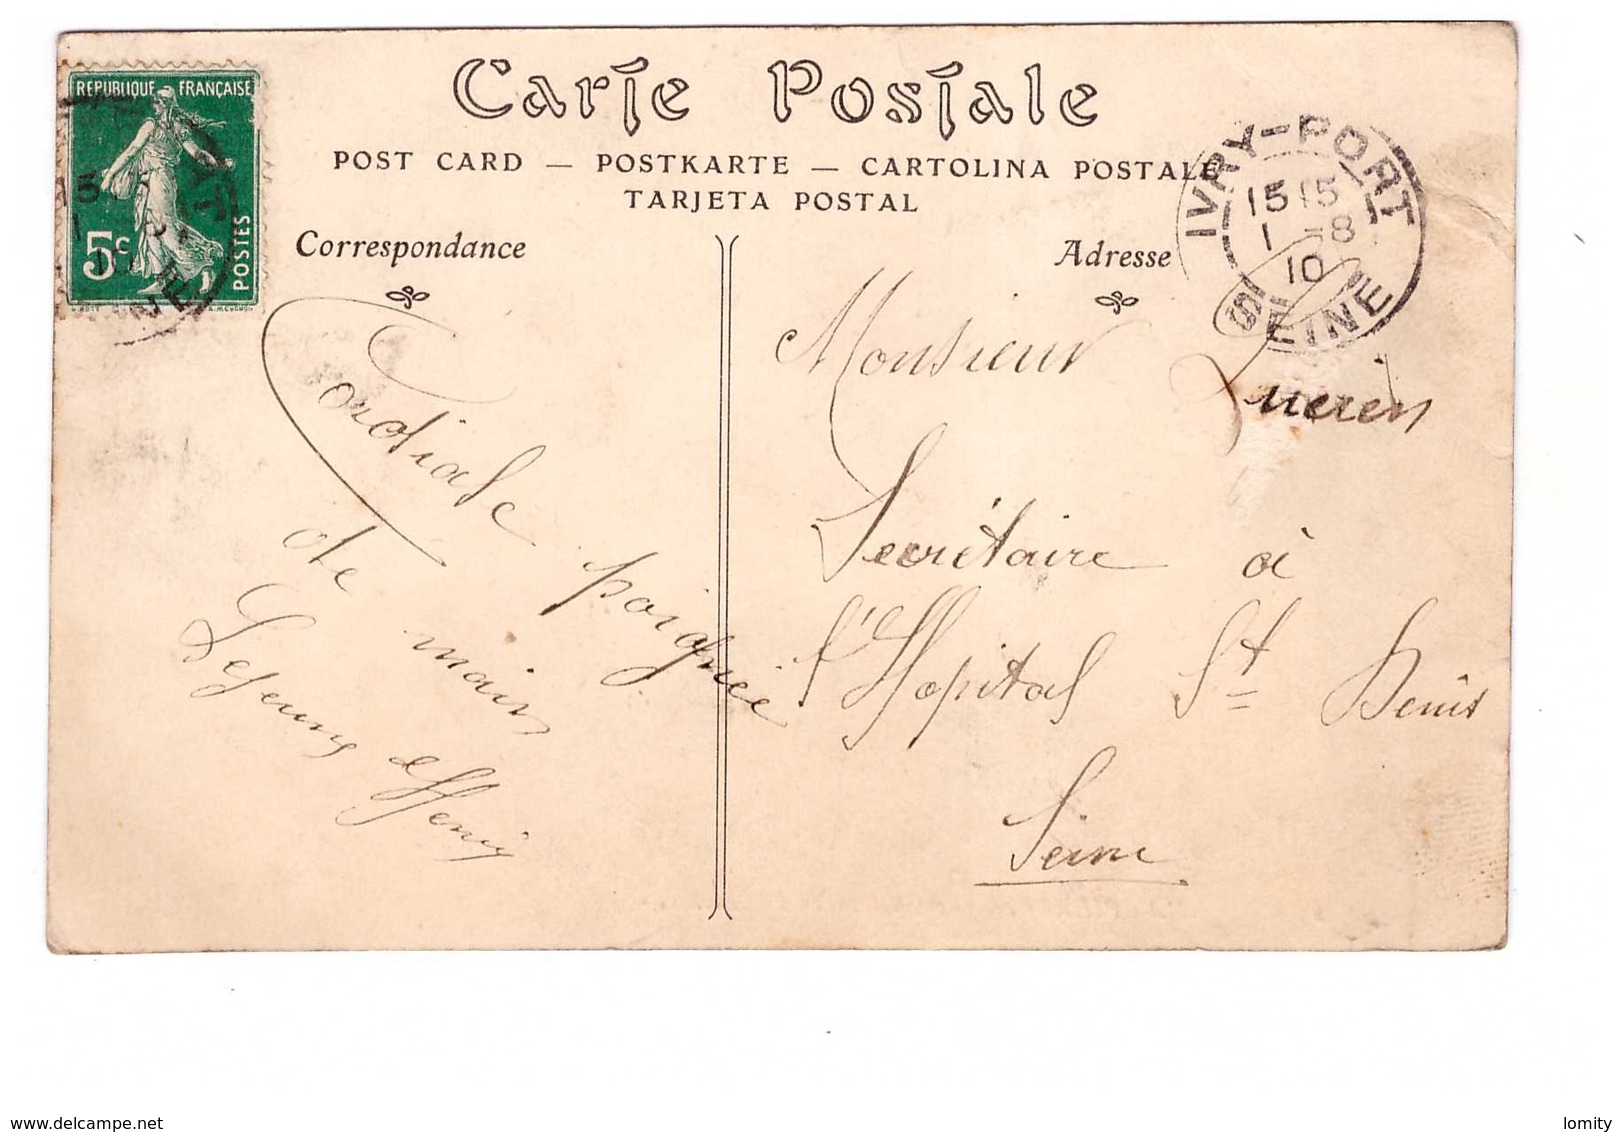 REPUBLIQUE FRANÇAISE
5c
POSTES
Carte Postale
POST CARD — POSTKARTE — CARTOLINA POSTALE
TARJETA POSTAL
Correspondance
Cordiale poignée
de main
Adresse
IVRY-PORT
15 15
1 -8
10
SEINE
Monsieur
Secrétaire à
l'Hopital St Denis
Seine
www.delcampe.net
lomity